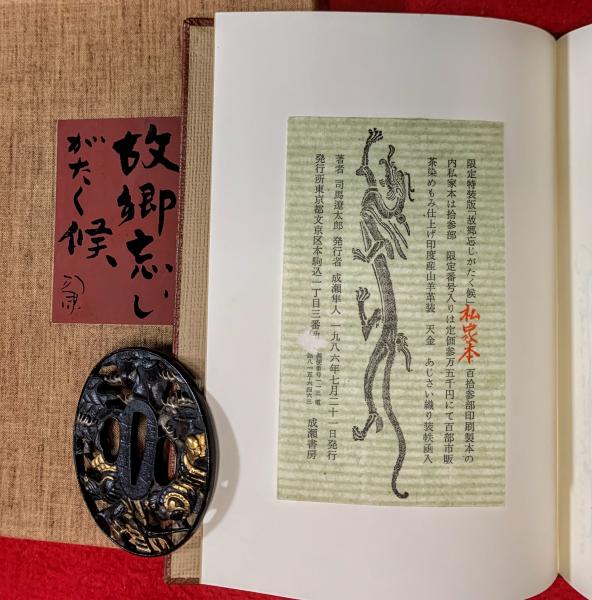 故郷忘じ
がたく候、
限定特装版「故郷忘じがたく候」私家本 百拾参部印刷製本の
内私家本は拾参部 限定番号入りは定価参万五千円にて百部市販
茶染めもみ仕上げ印度産山羊革装 天金 あじさい織り装帙函入
著者 司馬遼太郎 発行者 成瀬隼人 一九八六年七月二十一日発行
発行所東京都文京区本駒込一丁目三番 成瀬書房